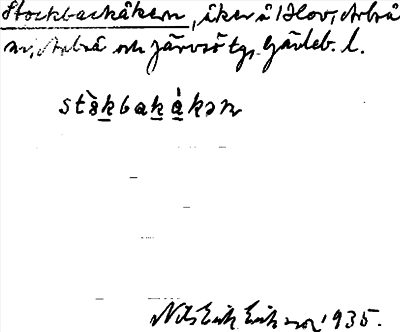 Stockbackåkern, åker å 1 Hov, Arbrå
sn, Arbrå och Järvsö tg, Gävleb. l.
stòkbakåkən
Nils Erik Eriksson 1935.